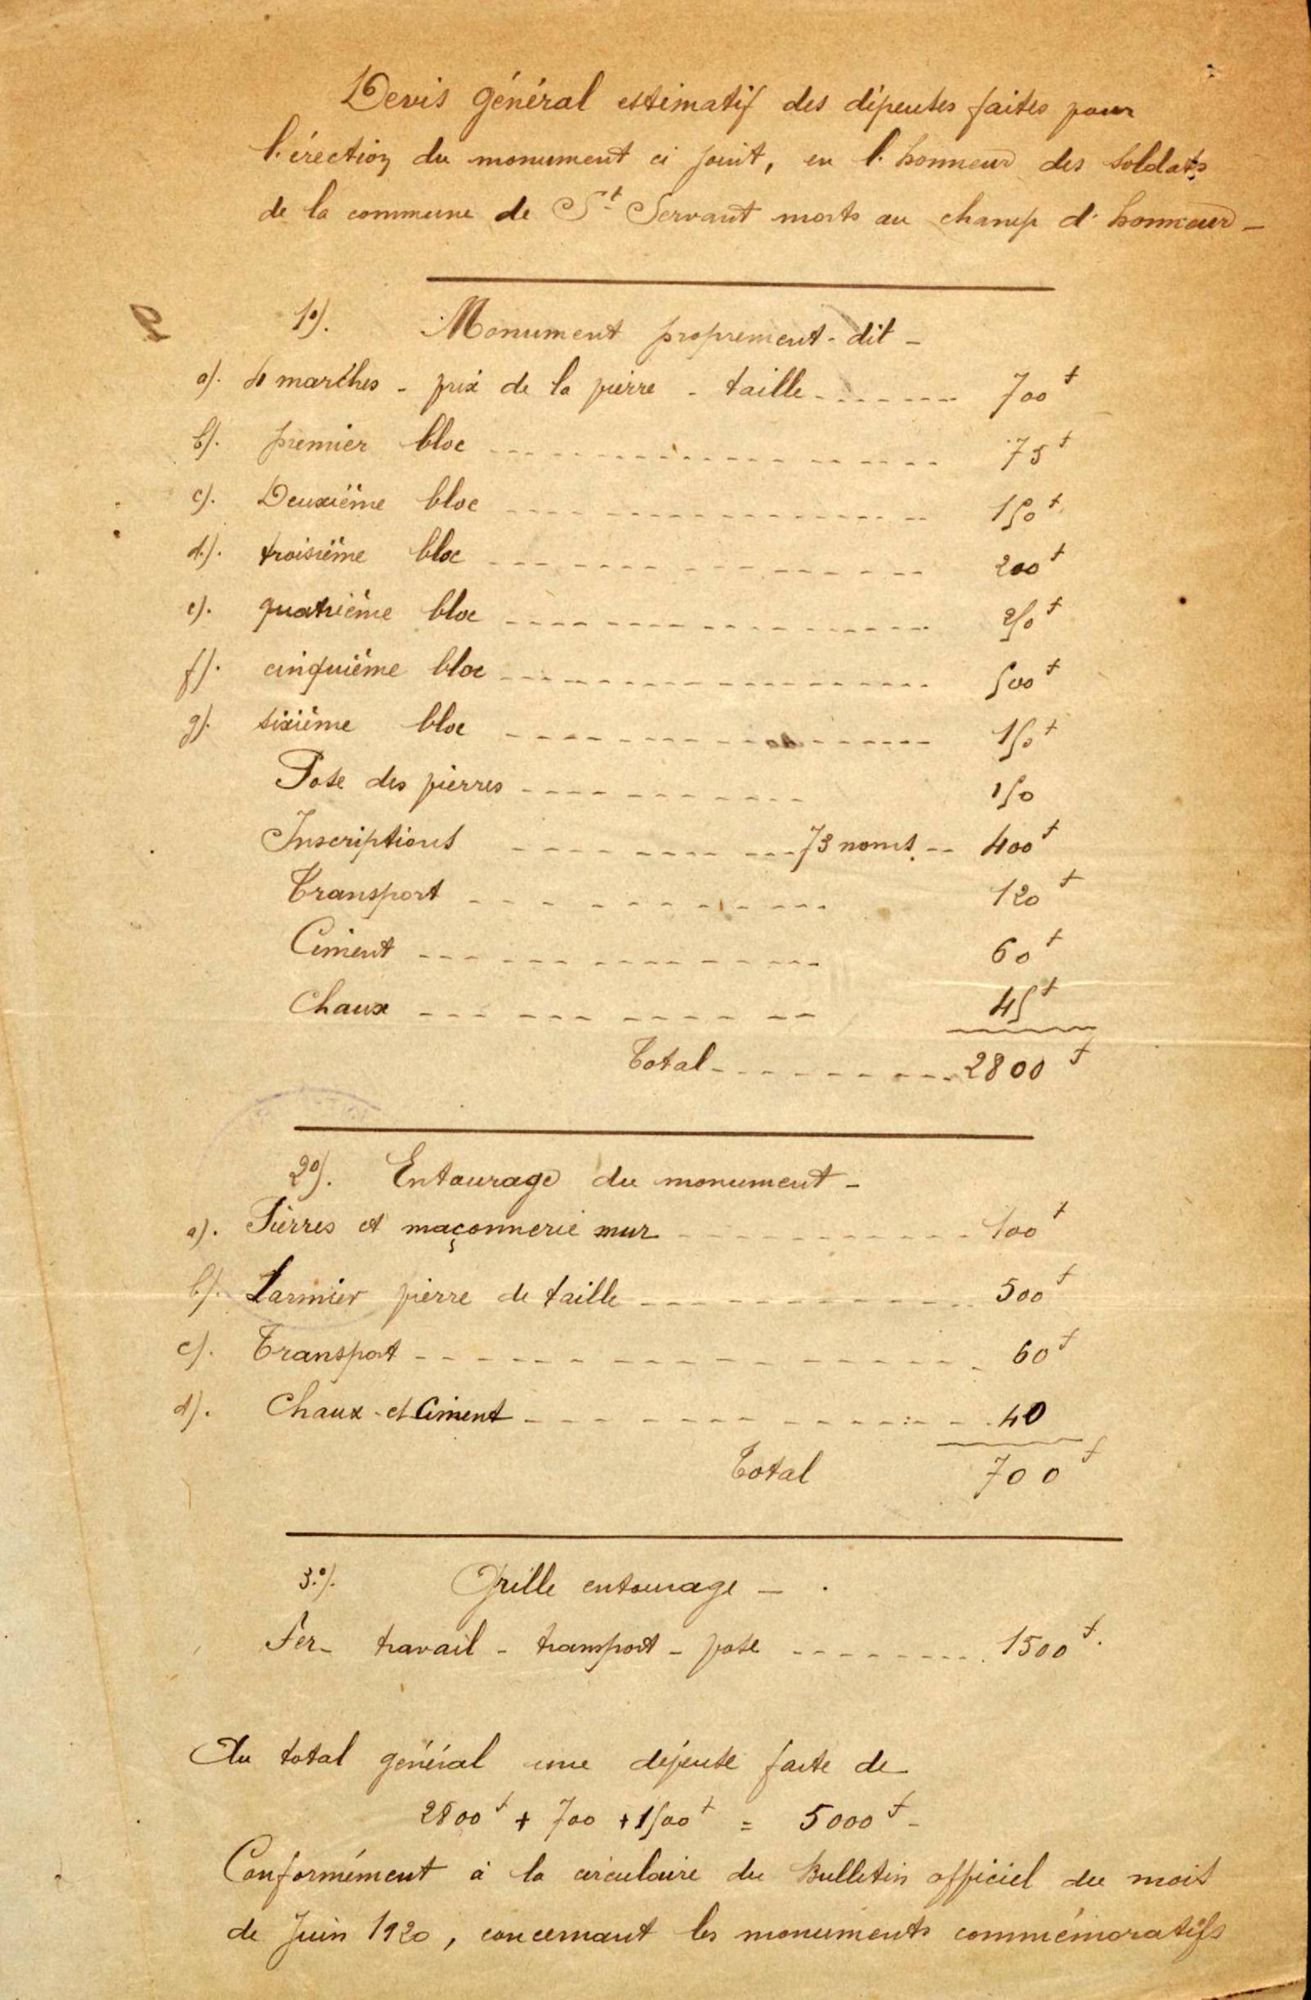 Devis général estimatif des dépenses faites pour
l'érection du monument ci joint, en l'honneur des soldats
de la commune de St Servant morts au champ d'honneur -
1°). Monument proprement-dit -
a). 4 marches - prix de la pierre - taille 700f
b). premier bloc 75f
c). Deuxième bloc 150f
d). troisième bloc 200f
e). quatrième bloc 250f
f). cinquième bloc 500f
g). sixième bloc 150f
Pose des pierres 150
Inscriptions 73 noms 400f
Transport 120f
Ciment 60f
Chaux 45f
Total 2800f
2°). Entourage du monument -
a). Pierres et maçonnerie mur 100f
b). Larmier pierre de taille 500f
c). Transport 60f
d). Chaux et Ciment 40
Total 700f
3°). Grille entourage -
Fer - travail - transport - pose 1500f.
Au total général une dépense faite de
2800f + 700 + 1500f = 5000f -
Conformément à la circulaire du Bulletin officiel du mois
de Juin 1920, concernant les monuments commémoratifs